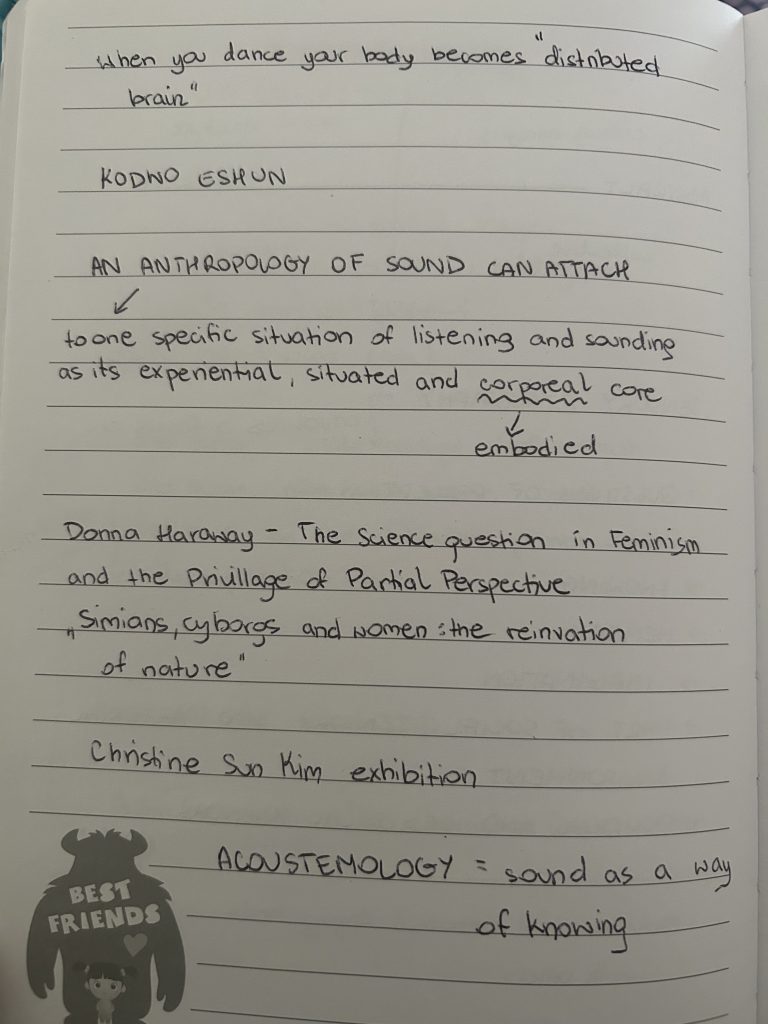 When you dance your body becomes "distributed
brain"
KODWO ESHUN
AN ANTHROPOLOGY OF SOUND CAN ATTACH
to one specific situation of listening and sounding
as its experiential, situated and corporeal core
embodied
Donna Haraway - The Science question in Feminism
and the Privillage of Partial Perspective
„Simians, cyborgs and women : the reinvation
of nature"
Christine Sun Kim exhibition
ACOUSTEMOLOGY = sound as a way
of knowing
BEST
FRIENDS